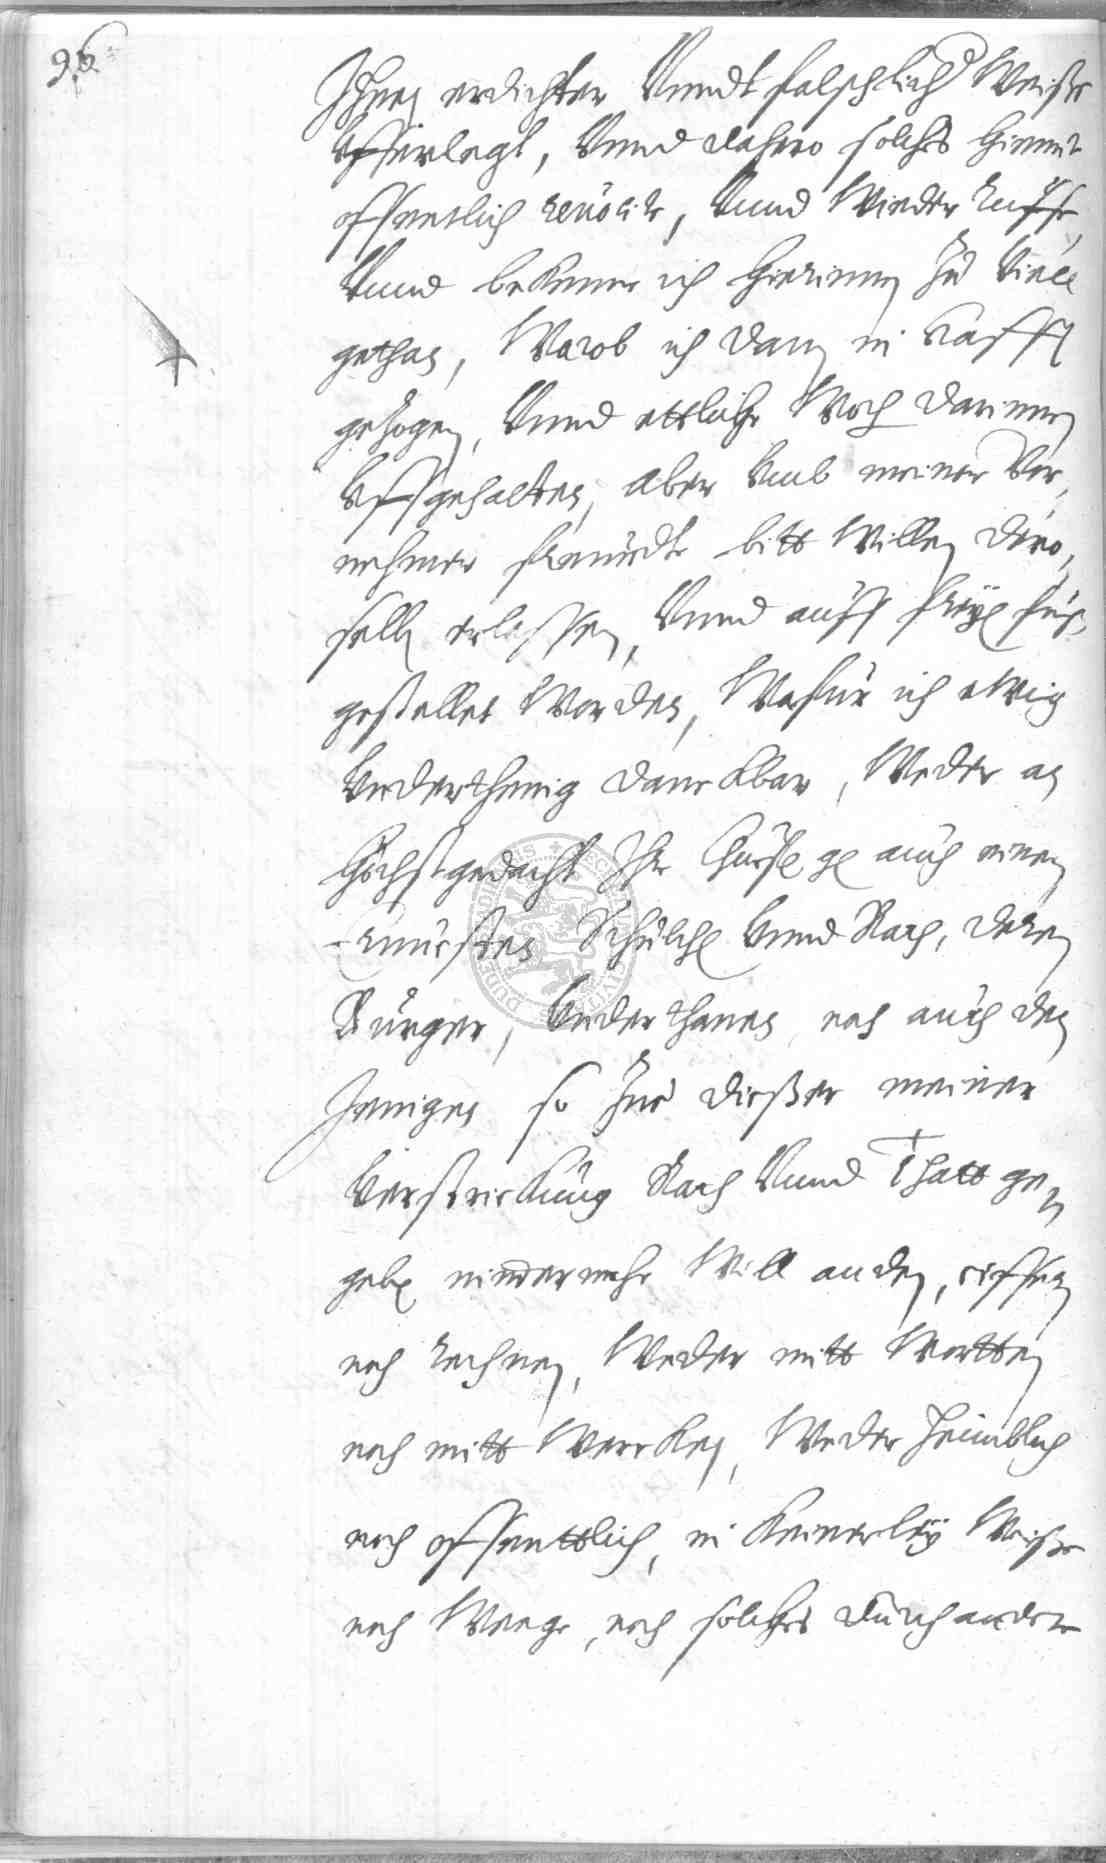 96
Ihnen erdichter Vnndt falschlich Weiße
Vfferlegt, Vnnd dahero solches hiemit
offentlich reuocir, Vnnd Wieder Ruffe,
Vnnd bekenne ich hierinnen Zu Viell
gethan, Warob ich dann in hafft
gezogen, Vnnd ettliche Woch darinnen
Vffgehalten, aber Vmb meiner Vor,
nehmer freundt bitt Willen dero,
selben erlassen, Vnnd auff freyen fuß
gestellet Worden, Wofur ich ewig
Vnderthenig danckbar, Weder an
höchstgedacht Ihr Churf. g. auch einen
Schulth. Vnnd Rath, deren
Burger, Vnderthanen noch auch den
Jenigen so Zue dießer meiner
Verstrickung Rath Vnnd Thatt ge,
geben nimmermehr Will anden, eiffern
noch rechnen, Weder mitt Wortten
noch mitt Wercken, Weder heimblich
noch offenttlich, in keinerley Weiße
noch Weege, noch solches durch andere